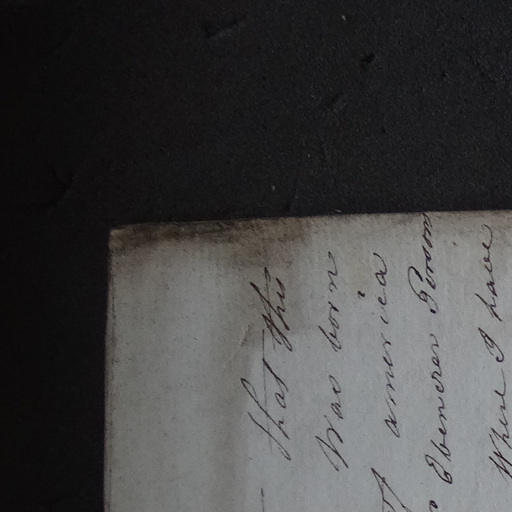 that this
was born
of america
Ebenezer Parsons
Where I have